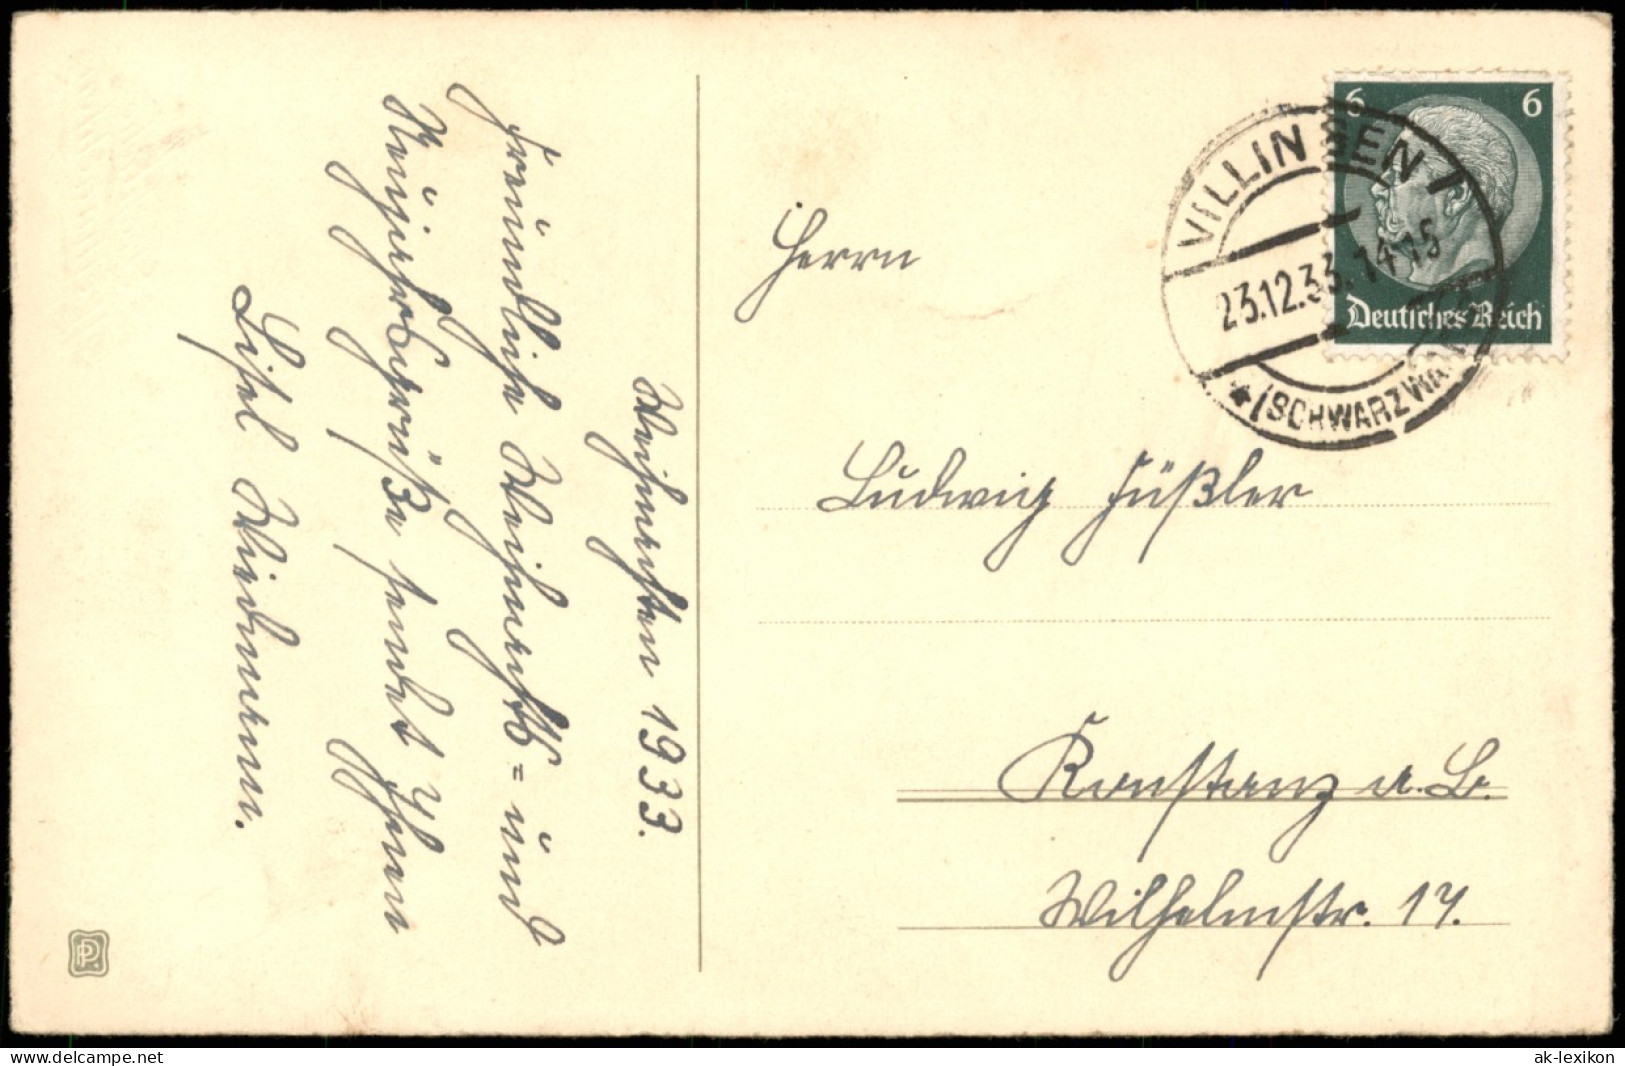 Weihnachten 1933.
Freundliche Weihnachts= und
Neujahrsgrüße sendet Ihnen
Lisel Widmann.
Herrn
Ludwig Füßler
Konstanz a. B.
Wilhelmstr. 17.
6 6
Deutsches Reich
VILLINGEN
23.12.33. 14-15
* (SCHWARZWALD)
PP
www.delcampe.net
ak-lexikon